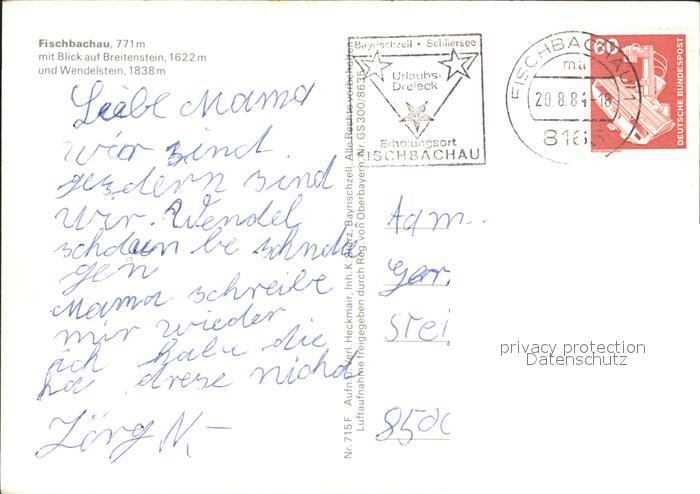 Fischbachau, 771m
mit Blick auf Breitenstein, 1622m
und Wendelstein, 1838m
Liebe Mama
wir sind
gesdern sind
wir. Wendel
schdein be
gen
Mama schreibe
mir wieder
ich habe die
drese nichd
Jörg N.
Nr. 715 F Aufn. u. Verl. Heckmair, Inh. K. Bayrischzell, Alle Rechte vorbehalten
Luftaufnahme freigegeben durch Reg. von Oberbayern, Nr. GS 300/8635
Bayrischzell · Schliersee
Urlaubs-
Dreieck
Erholungsort
FISCHBACHAU
FISCHBACHAU 1
20.8.84 -18
8165
60
DEUTSCHE BUNDESPOST
Adm..
Ger
Stei
850
privacy protection
Datenschutz